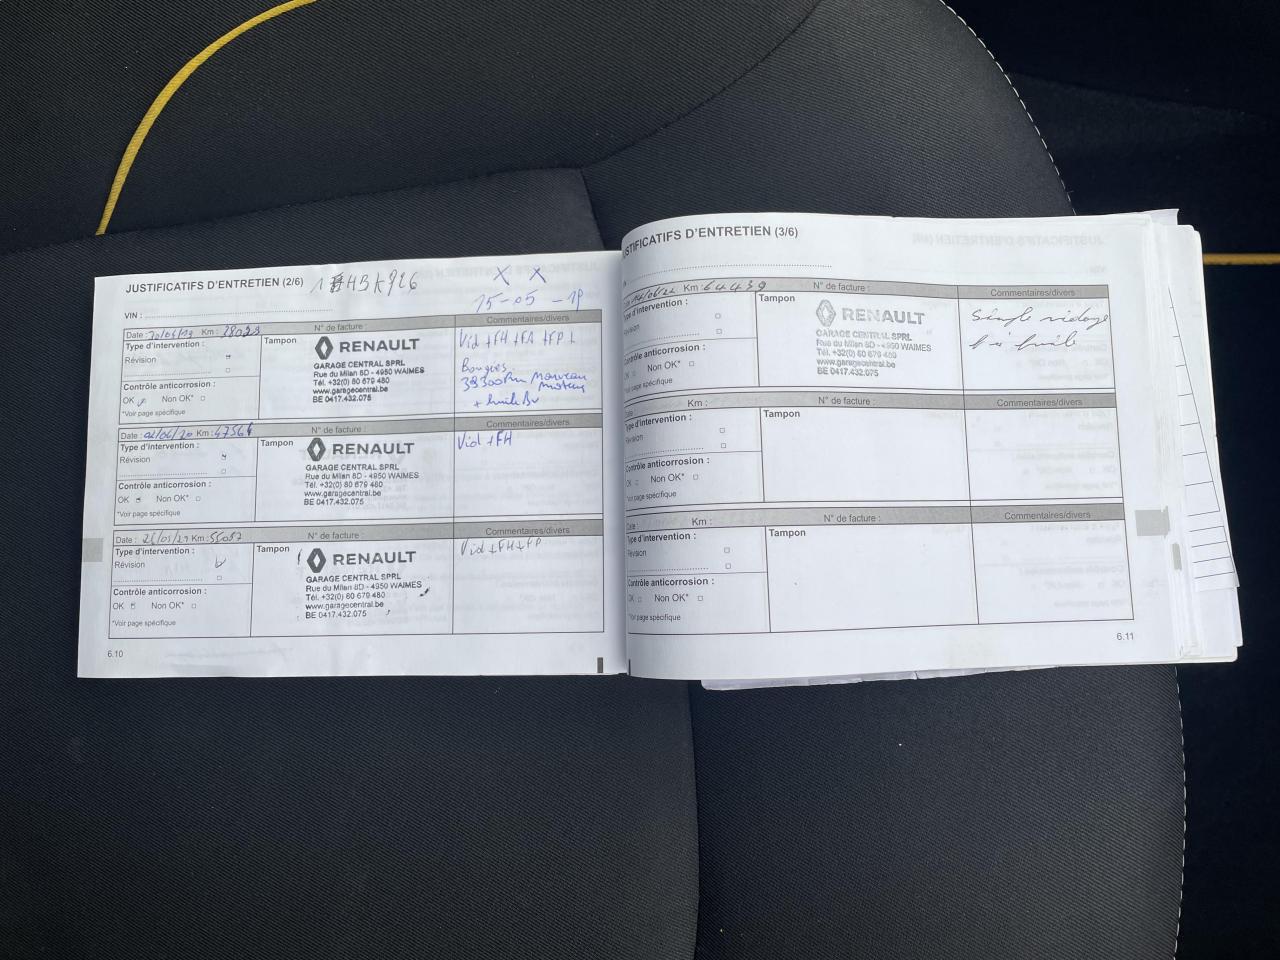 JUSTIFICATIFS D'ENTRETIEN (2/6)
15-05-19
VIN :
Date : Km : 28029 N° de facture : Commentaires/divers
Type d'intervention :
Révision
Contrôle anticorrosion :
OK Non OK*
*Voir page spécifique
Tampon
RENAULT
GARAGE CENTRAL SPRL
Rue du Milan 8D - 4950 WAIMES
Tél. +32(0) 80 679 480
www.garagecentral.be
BE 0417.432.075
Vid + FH + FA + FP +
Bougies
39300km Nouveau
moteur
+ huile Bv
Date : 02/06/20 Km : 47564 N° de facture : Commentaires/divers
Type d'intervention :
Révision
Contrôle anticorrosion :
OK Non OK*
*Voir page spécifique
Tampon
RENAULT
GARAGE CENTRAL SPRL
Rue du Milan 8D - 4950 WAIMES
Tél. +32(0) 80 679 480
www.garagecentral.be
BE 0417.432.075
Vid + FH
Date : Km : N° de facture : Commentaires/divers
Type d'intervention :
Révision
Contrôle anticorrosion :
OK Non OK*
*Voir page spécifique
Tampon
RENAULT
GARAGE CENTRAL SPRL
Rue du Milan 8D - 4950 WAIMES
Tél. +32(0) 80 679 480
www.garagecentral.be
BE 0417.432.075
Vid + FH + FP
6.10
JUSTIFICATIFS D'ENTRETIEN (3/6)
Km : 64439 N° de facture : Commentaires/divers
Type d'intervention :
Révision
Contrôle anticorrosion :
OK Non OK*
*Voir page spécifique
Tampon
RENAULT
GARAGE CENTRAL SPRL
Rue du Milan 8D - 4950 WAIMES
Tél. +32(0) 80 679 480
www.garagecentral.be
BE 0417.432.075
Simple vidage
huile
Date : Km : N° de facture : Commentaires/divers
Type d'intervention :
Révision
Contrôle anticorrosion :
OK Non OK*
*Voir page spécifique
Tampon
Date : Km : N° de facture : Commentaires/divers
Type d'intervention :
Révision
Contrôle anticorrosion :
OK Non OK*
*Voir page spécifique
Tampon
6.11